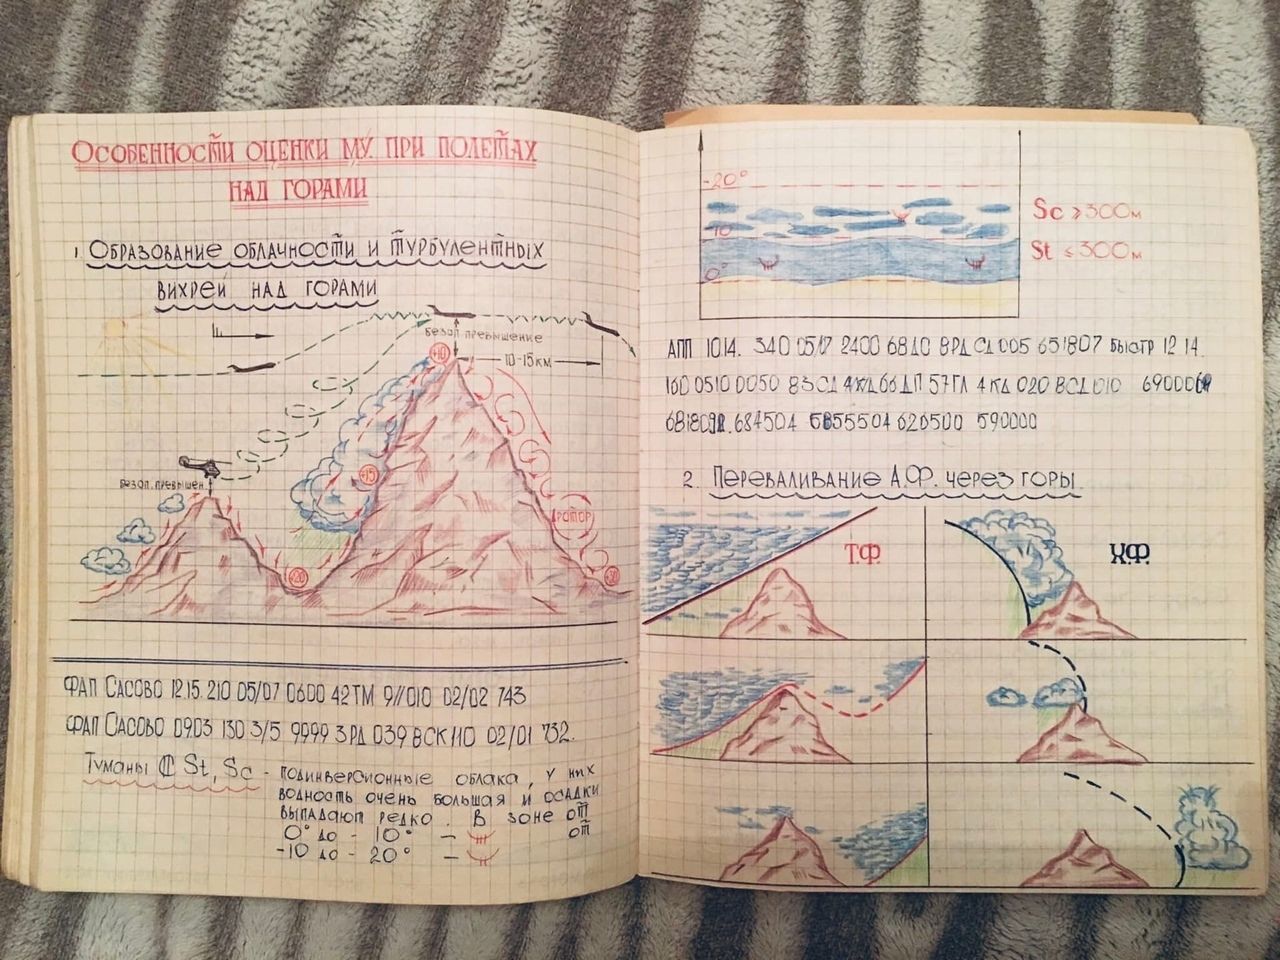 Особенности оценки МУ при полетах
над горами
1. Образование облачности и турбулентных
вихрей над горами
Безоп. превышение
10-15км
+10
Безоп. превышен.
+15
Ротор
+20
+30
ФАП Сасово 12.15. 210 05/07 0600 42ТМ 9//010 02/02 743
ФАП Сасово 0903 130 3/5 9999 3РД 039 ВСК110 02/01 732.
Туманы St, Sc - подинверсионные облака, у них
водность очень большая и осадки
выпадают редко. В зоне от
0° до - 10° - от
-10 до - 20° -
-20°
Sc ≥ 300м
-10
St ≤ 300м
0°
АПП 1014. 340 05/7 2400 68Д0 8РД СД 005 651807 быстр 12 14.
160 0510 0050 83СД 4КД 66ДП 57ГЛ 4КД 020 ВСД010
684504 620500 590000
2. Переваливание А.Ф. через горы
Т.Ф. Х.Ф.